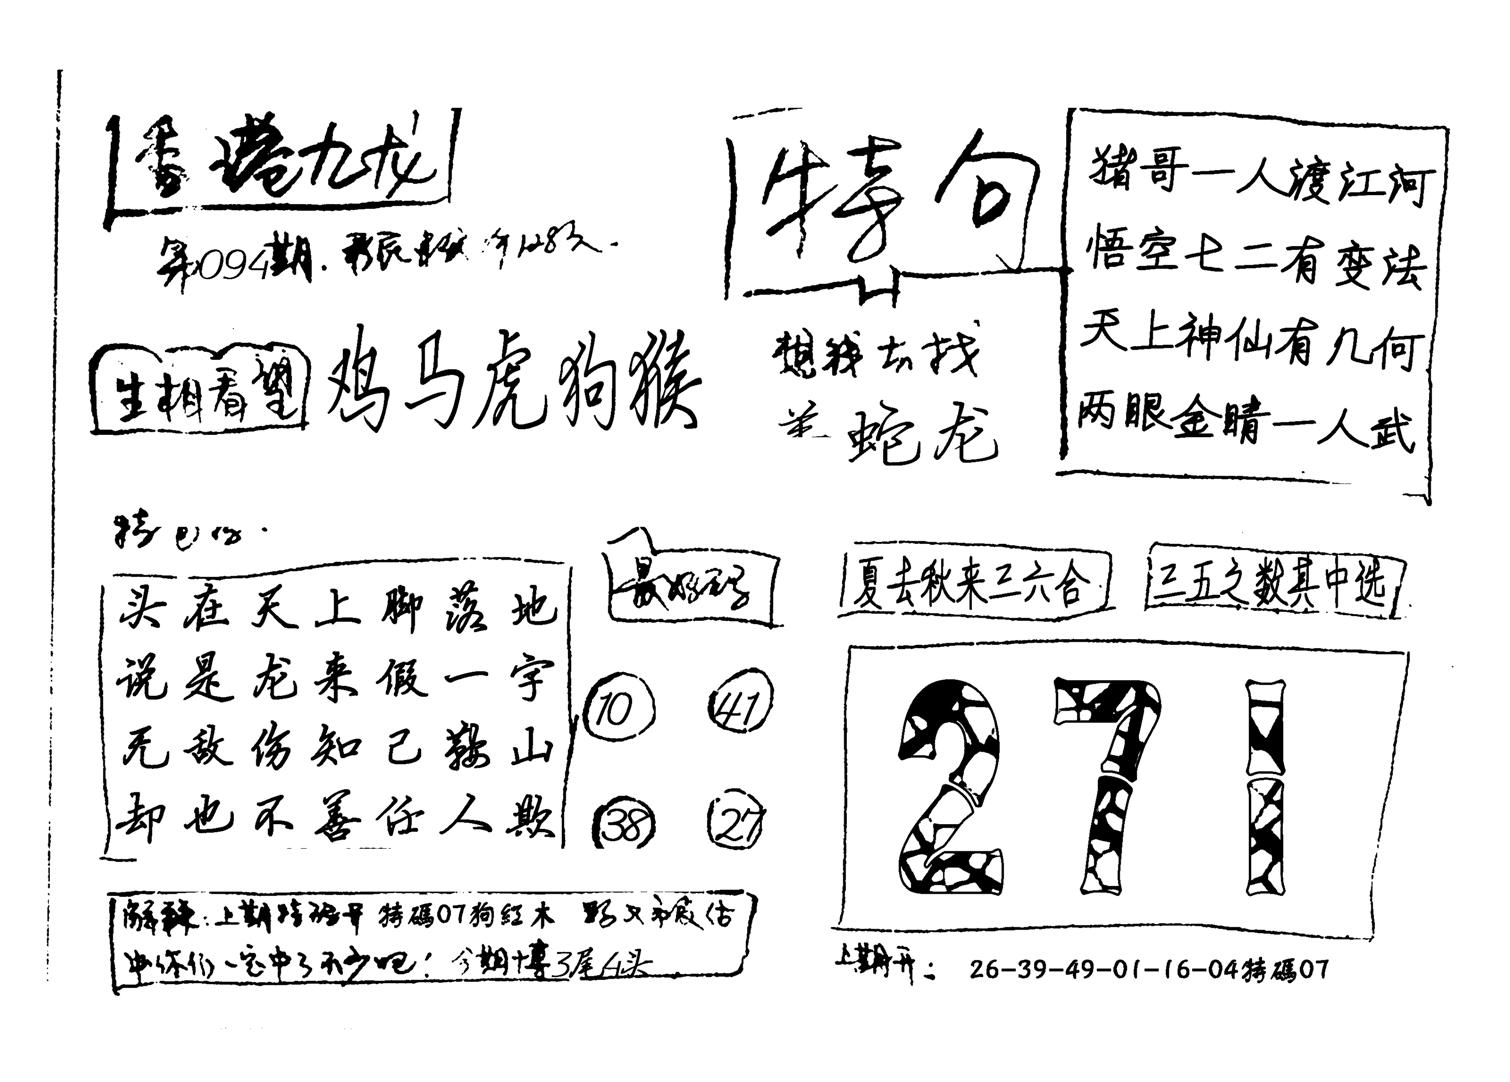 香港九龙
第094期.
生相看望
鸡马虎狗猴
特句
想钱去找
羊蛇龙
猪哥一人渡江河
悟空七二有变法
天上神仙有几何
两眼金睛一人武
头在天上脚落地
说是龙来假一字
无敌伤知己鞍山
却也不善任人欺
最好码
10 41
38 27
夏去秋来三六合
三五之数其中选
271
解释:上期特码开 特碼07狗红木
你们一定中了不少吧! 今期博3尾4头
上期开: 26-39-49-01-16-04特碼07